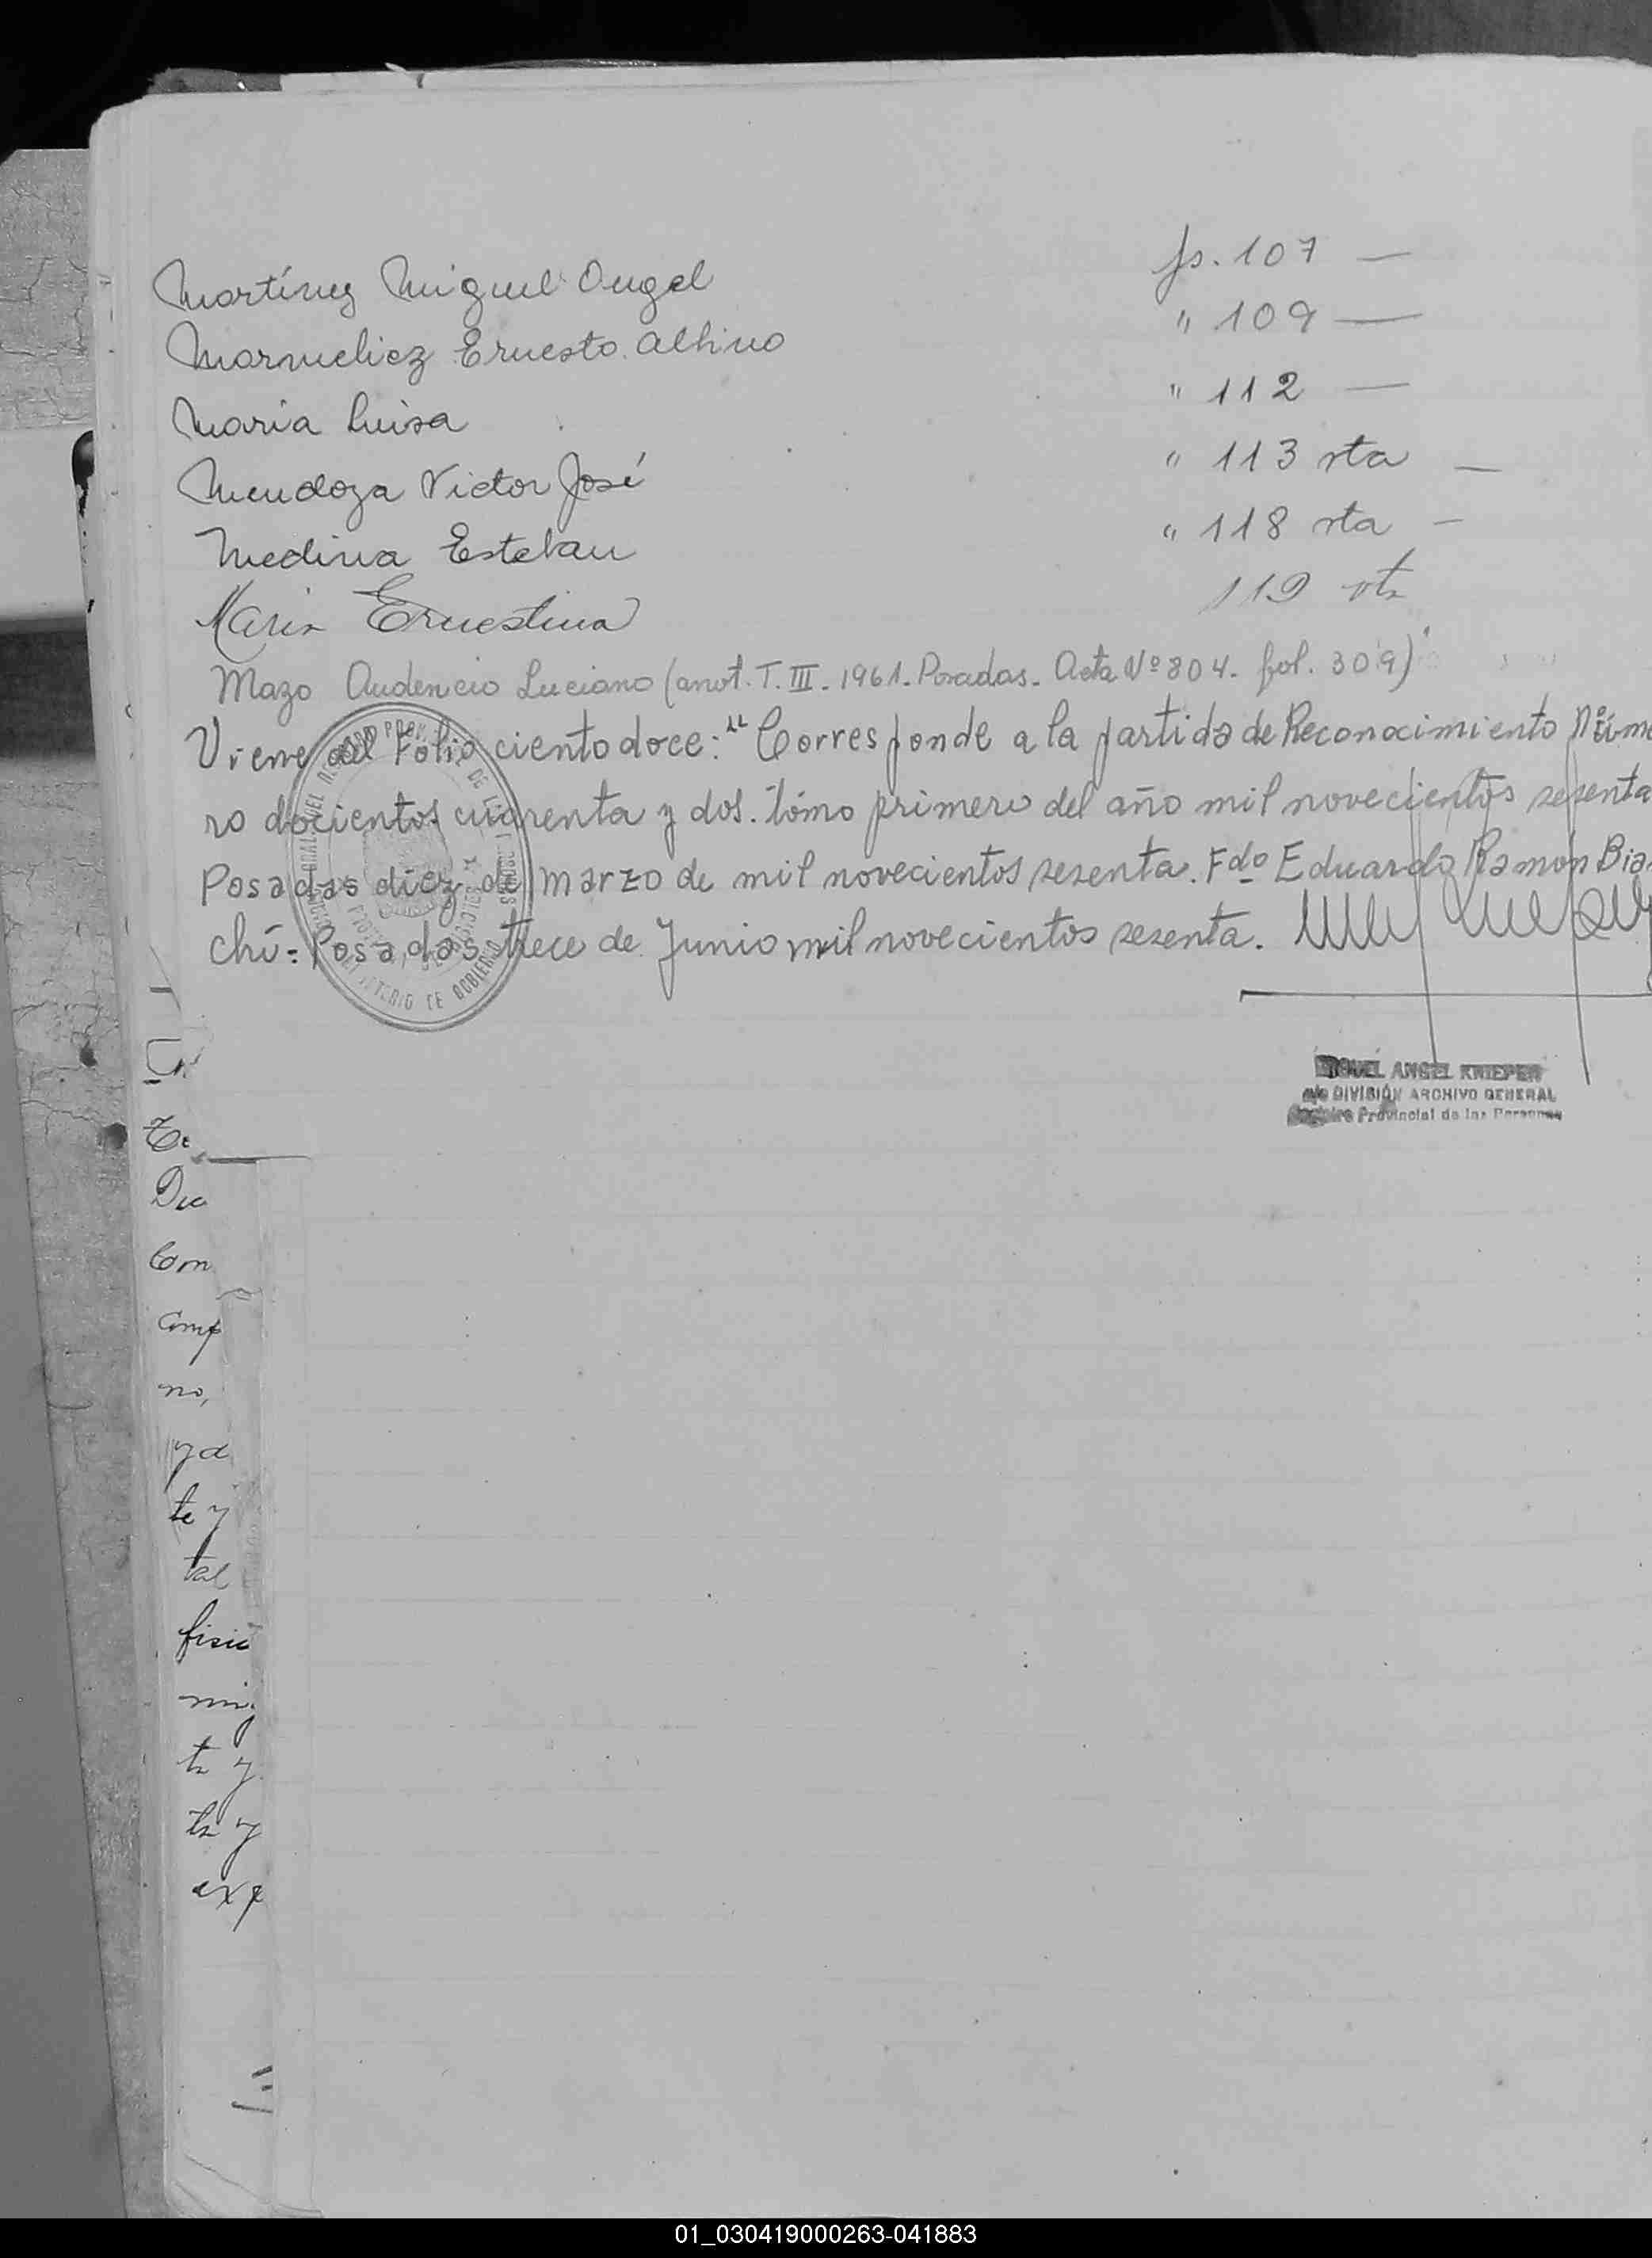 Martínez Miguel Angel fs. 107 —
Marmeliez Ernesto Albino " 109 —
Maria Luisa " 112 —
Mendoza Victor José " 113 vta —
Medina Esteban " 118 vta —
Maria Ernestina 119 vta
Mazo Audencio Luciano (anot. T. III - 1961. Posadas - Acta Nº 804 - fol. 309)
Viene del Folio ciento doce: " Corresponde a la partida de Reconocimiento Núme
ro docientos cuarenta y dos. tómo primero del año mil novecientos sesenta
Posadas diez de marzo de mil novecientos sesenta. Fdo Eduardo Ramón Bian
chi = Posadas trece de Junio mil novecientos sesenta.
MIGUEL ANGEL KRIEPER
DIVISIÓN ARCHIVO GENERAL
Registro Provincial de las Personas
Com
Comp
no,
y d
te y
tal
fisic
ta y
ta y
exp
01_030419000263-041883